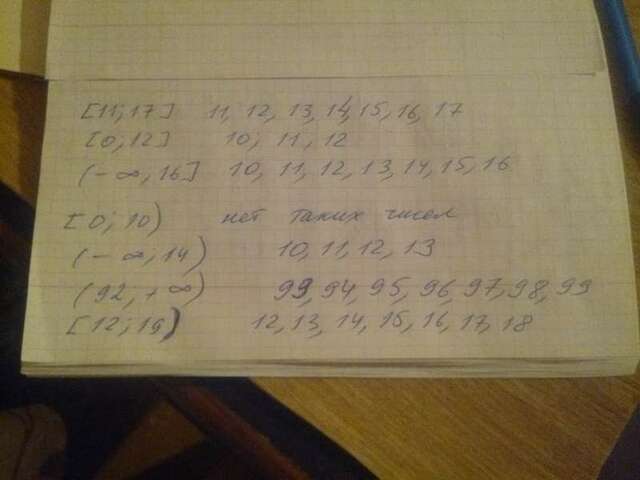 [11; 17] 11, 12, 13, 14, 15, 16, 17
[0; 12] 10; 11, 12
(- ∞, 16] 10, 11, 12, 13, 14, 15, 16
[0; 10) нет таких чисел
(- ∞; 14) 10, 11, 12, 13
(92, + ∞) 93, 94, 95, 96, 97, 98, 99
[12; 19) 12, 13, 14, 15, 16, 17, 18